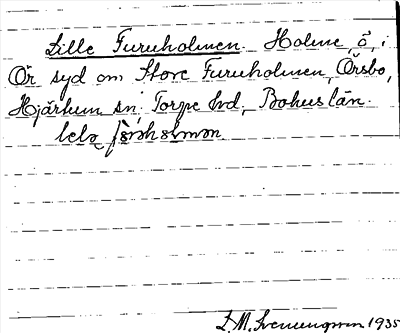 Lille Furuholmen. Holme, ö, i
Ör syd om Store Furuholmen, Örsbo,
Hjärtum sn. Torpe hd, Bohuslän.
lelə
1935